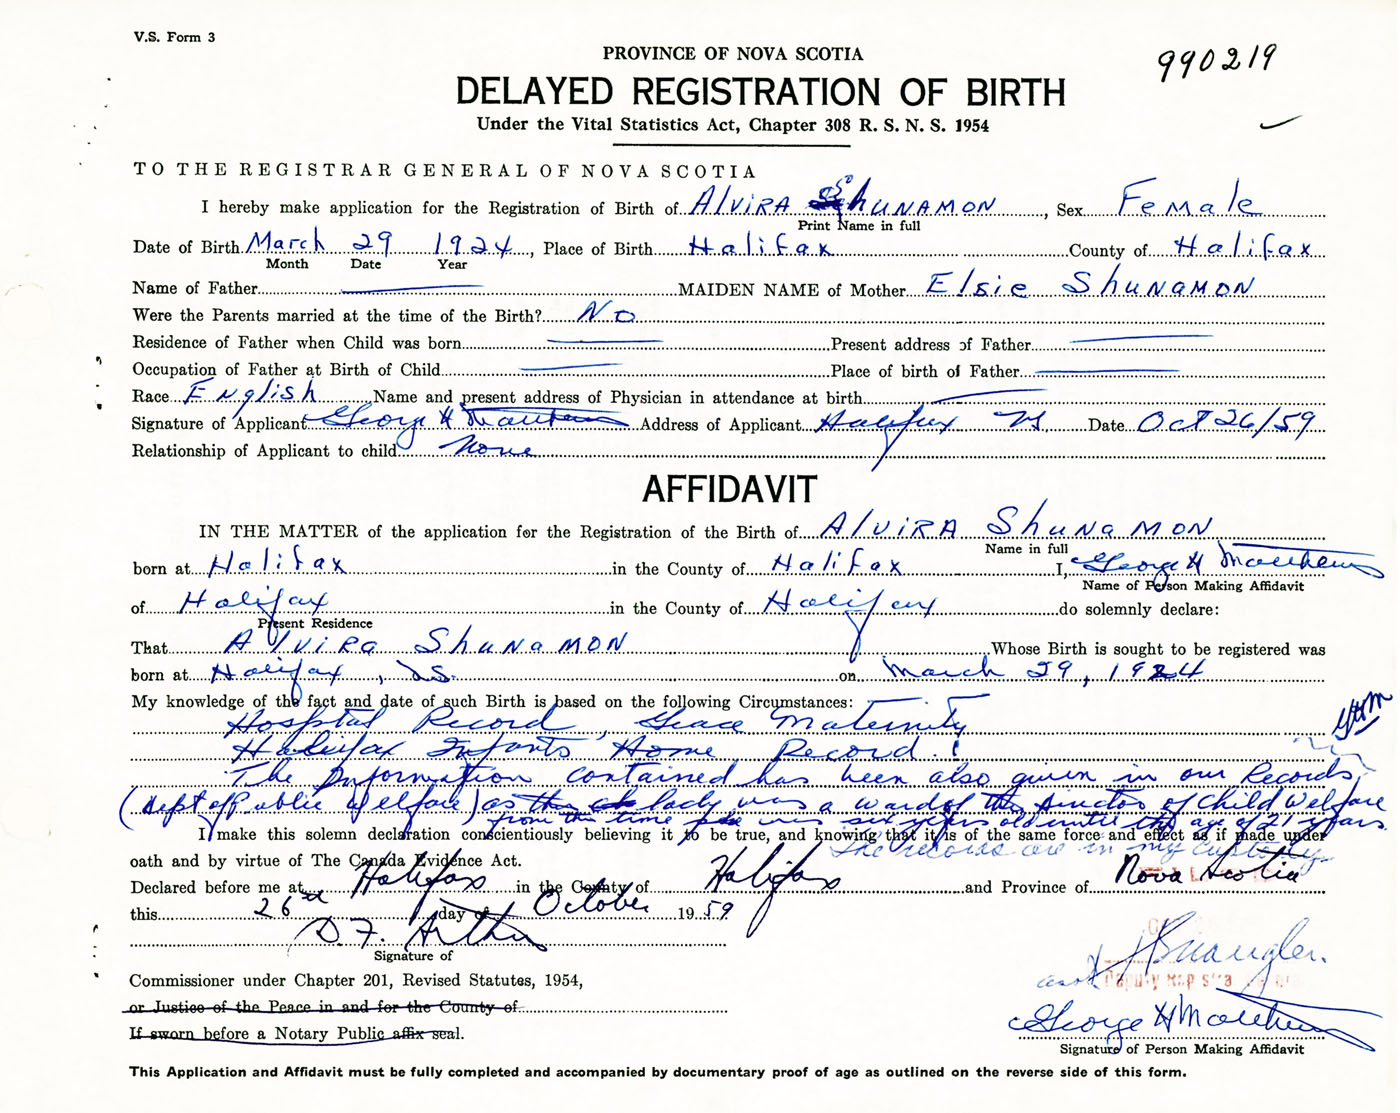 V.S. Form 3
PROVINCE OF NOVA SCOTIA
990219
DELAYED REGISTRATION OF BIRTH
Under the Vital Statistics Act, Chapter 308 R. S. N. S. 1954
TO THE REGISTRAR GENERAL OF NOVA SCOTIA
I hereby make application for the Registration of Birth of Alvira Shunamon, Sex Female
Print Name in full
Date of Birth March 29 1924, Place of Birth Halifax County of Halifax
Month Date Year
Name of Father MAIDEN NAME of Mother Elsie Shunamon
Were the Parents married at the time of the Birth? No
Residence of Father when Child was born Present address of Father
Occupation of Father at Birth of Child Place of birth of Father
Race English Name and present address of Physician in attendance at birth
Signature of Applicant George H Matthews Address of Applicant Halifax NS Date Oct 26/59
Relationship of Applicant to child None
AFFIDAVIT
IN THE MATTER of the application for the Registration of the Birth of Alvira Shunamon
Name in full
born at Halifax in the County of Halifax I, George H Matthews
Name of Person Making Affidavit
of Halifax in the County of Halifax do solemnly declare:
Present Residence
That Alvira Shunamon Whose Birth is sought to be registered was
born at Halifax, NS. on March 29, 1924
My knowledge of the fact and date of such Birth is based on the following Circumstances:
Hospital Record, Grace Maternity
Halifax Infants' Home Record.
The Information contained has been also given in our Records
(Dept of Public Welfare) as lady was a ward of the Director of Child Welfare
from the time she was six years old until the age of 21 years.
I make this solemn declaration conscientiously believing it to be true, and knowing that it is of the same force and effect as if made under
The records are in my custody.
oath and by virtue of The Canada Evidence Act.
Declared before me at Halifax in the County of Halifax and Province of Nova Scotia
this 26th day of October 1959
D. F. Arthur
Signature of
Commissioner under Chapter 201, Revised Statutes, 1954,
or Justice of the Peace in and for the County of
If sworn before a Notary Public affix seal.
Deputy Registrar
George H Matthews
Signature of Person Making Affidavit
This Application and Affidavit must be fully completed and accompanied by documentary proof of age as outlined on the reverse side of this form.